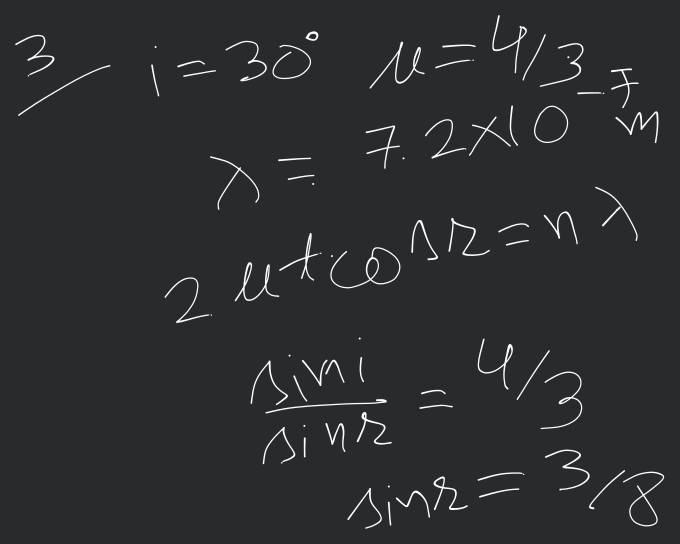 3/ i = 30° μ = 4/3
λ = 7.2×10⁻⁷ m
2 μt cos r = nλ
sin i / sin r = 4/3
sin r = 3/8